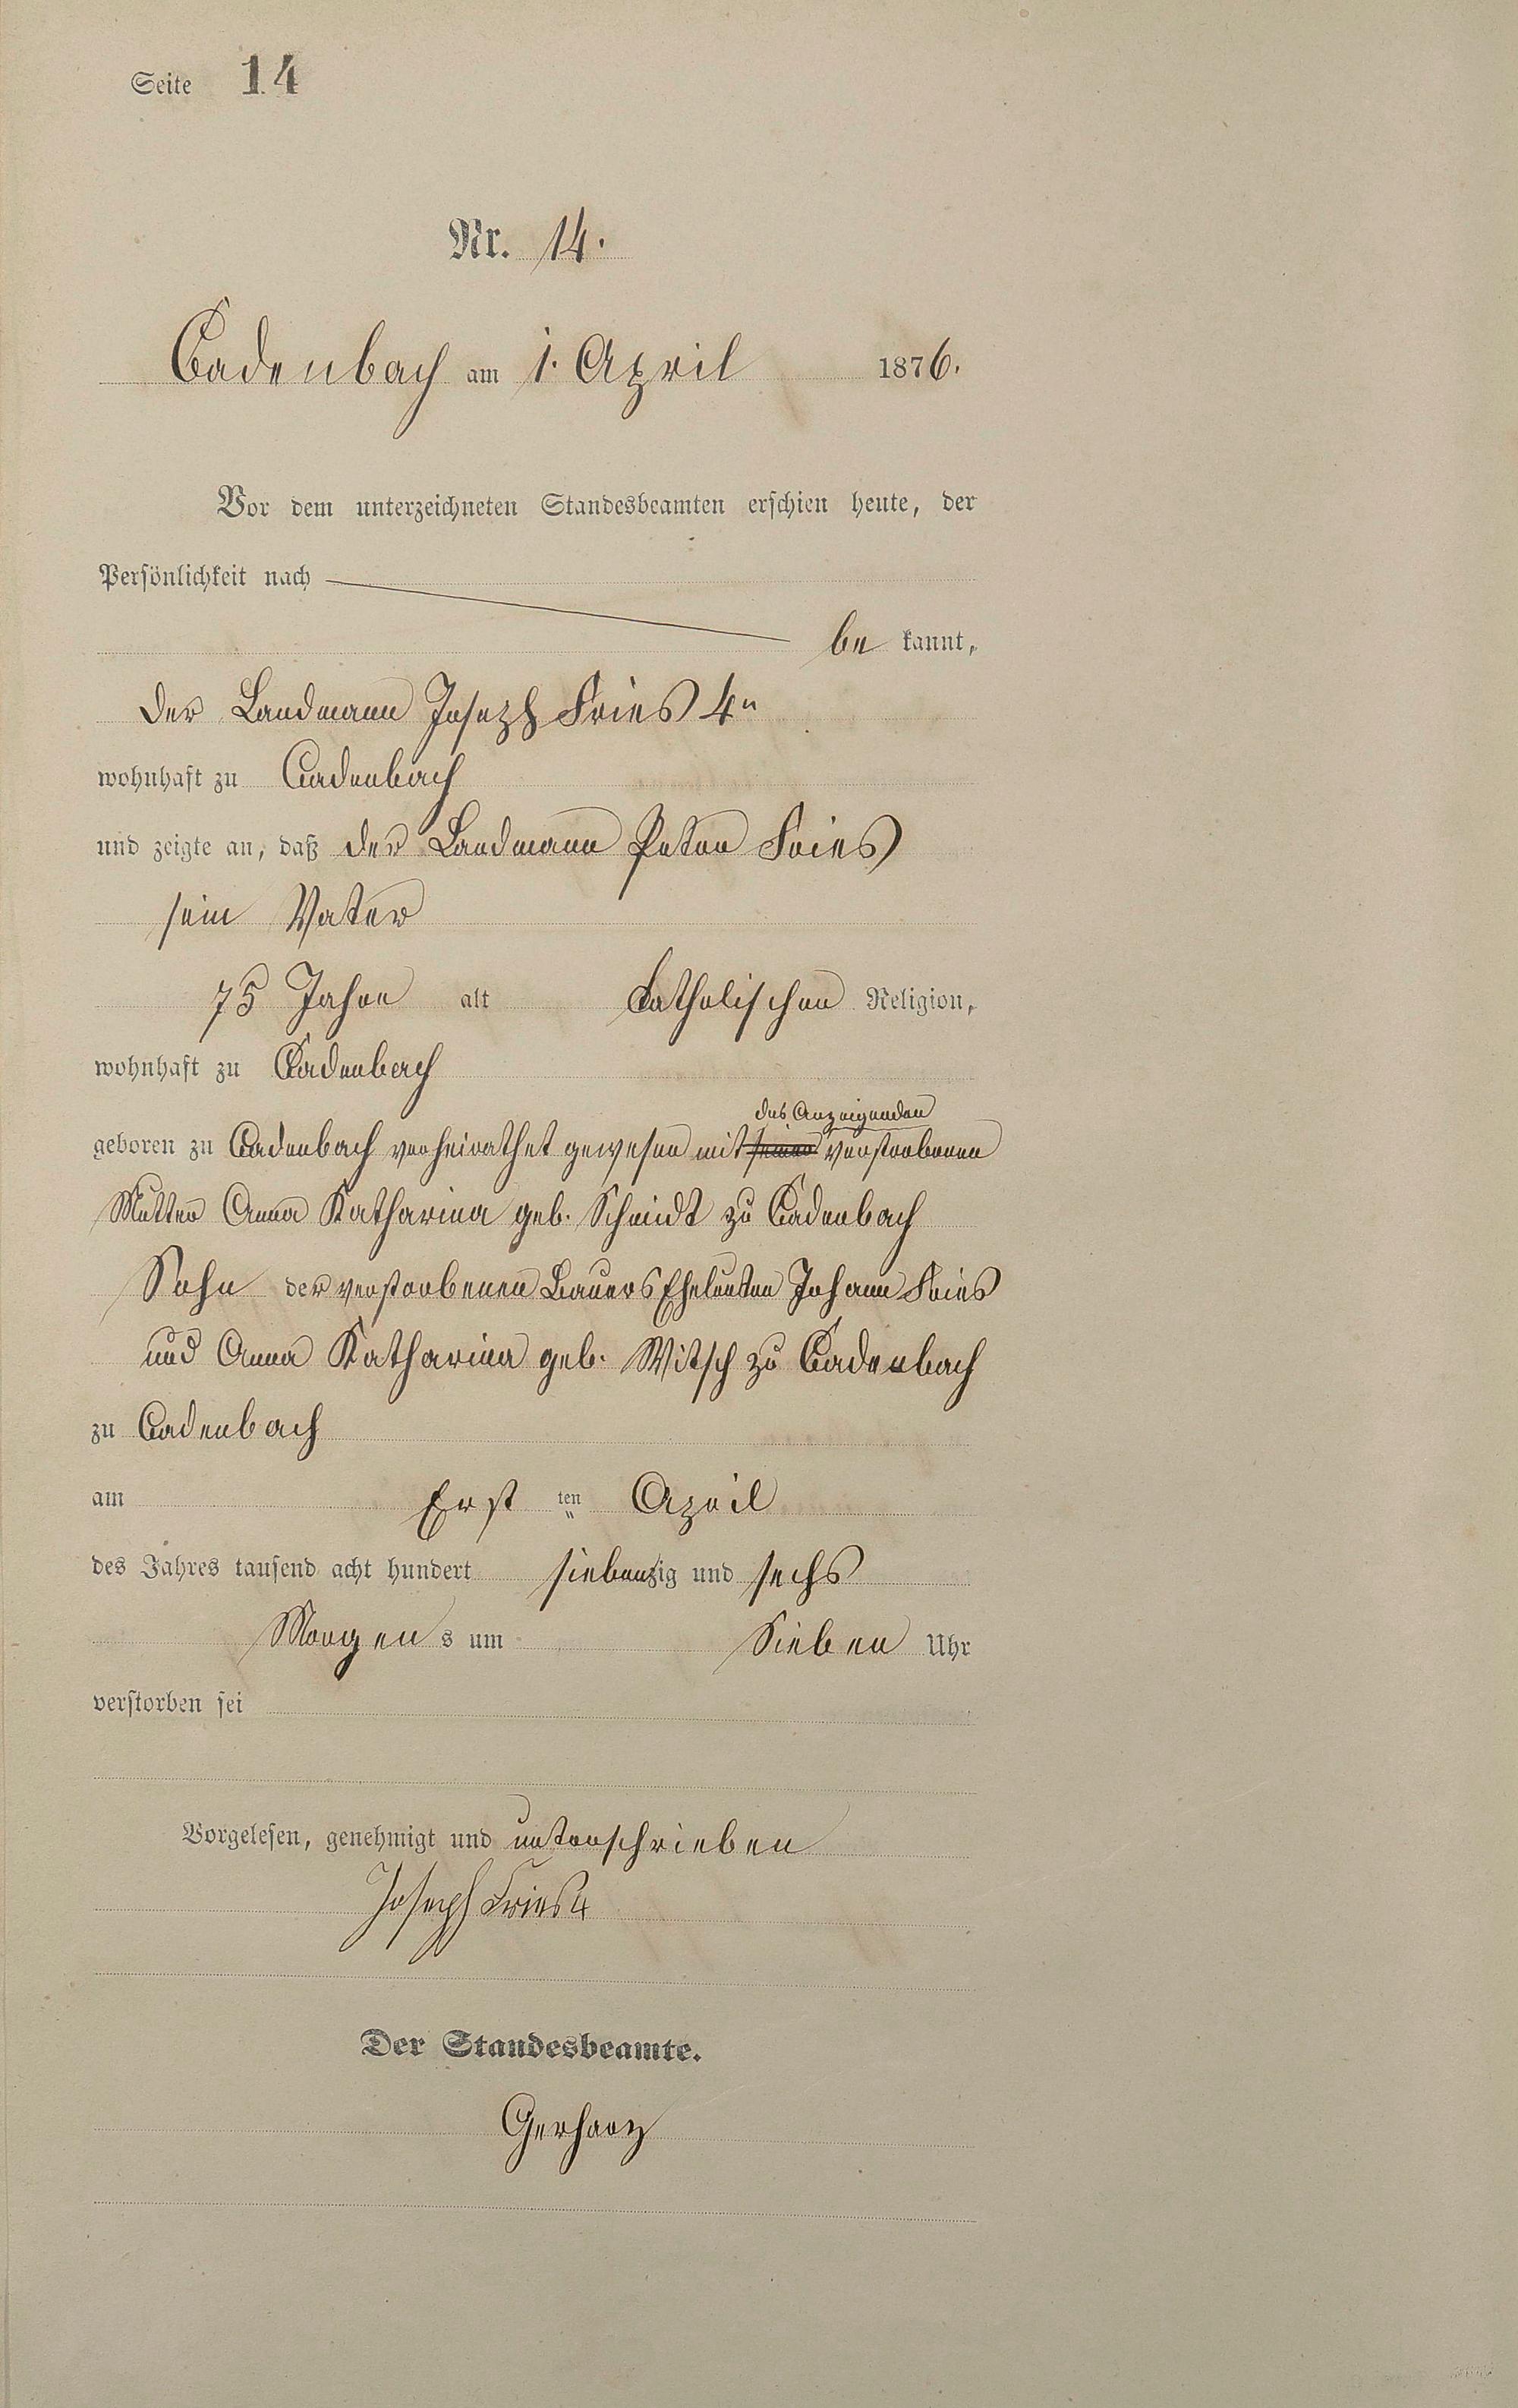 Seite 14
Nr. 14.
Cadenbach am 1. April 1876.
Vor dem unterzeichneten Standesbeamten erschien heute, der
Persönlichkeit nach
be kannt,
der Landmann Joseph Fries 4r
wohnhaft zu Cadenbach
und zeigte an, daß der Landmann Peter Fries
sein Vater
75 Jahre alt katholischer Religion,
wohnhaft zu Cadenbach
des Anzeigenden
geboren zu Cadenbach verheirathet gewesen mit seiner verstorbenen
Mutter Anna Katharina geb. Schmidt zu Cadenbach
Sohn der verstorbenen Bauers Eheleuten Johann Fries
und Anna Katharina geb. Witsch zu Cadenbach
zu Cadenbach
am Erst ten April
des Jahres tausend acht hundert siebenzig und sechs
Morgen s um Sieben Uhr
verstorben sei
Vorgelesen, genehmigt und unterschrieben
Joseph Fries 4
Der Standesbeamte.
Gerharz